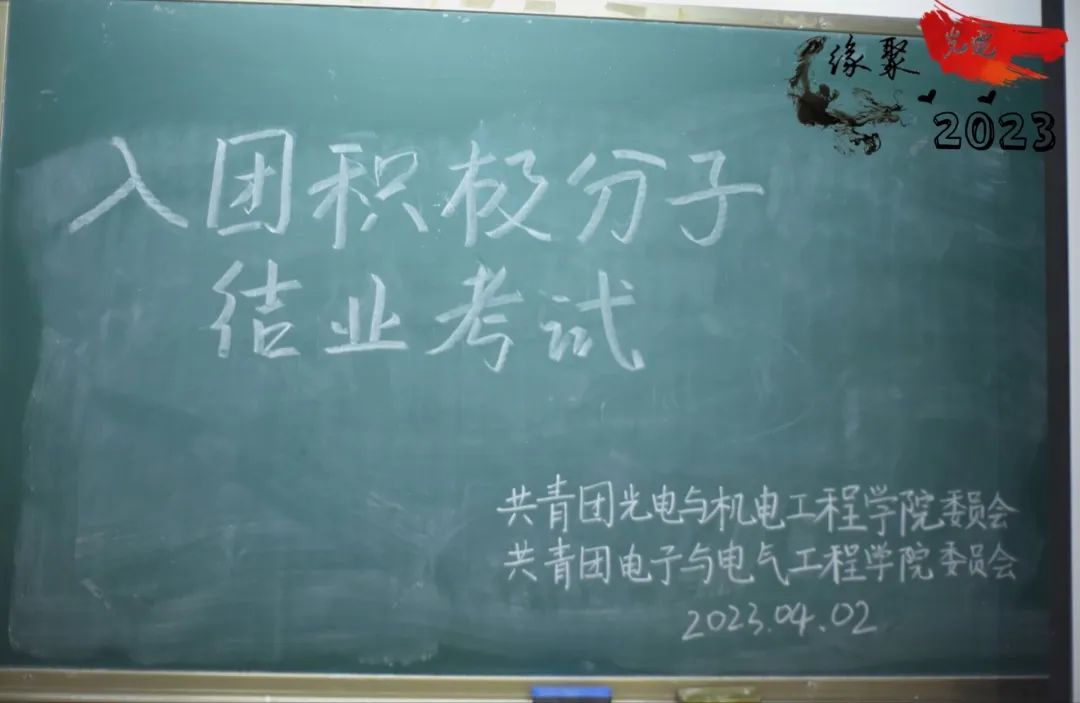 缘聚
光电
2023
入团积极分子
结业考试
共青团光电与机电工程学院委员会
共青团电子与电气工程学院委员会
2023.04.02